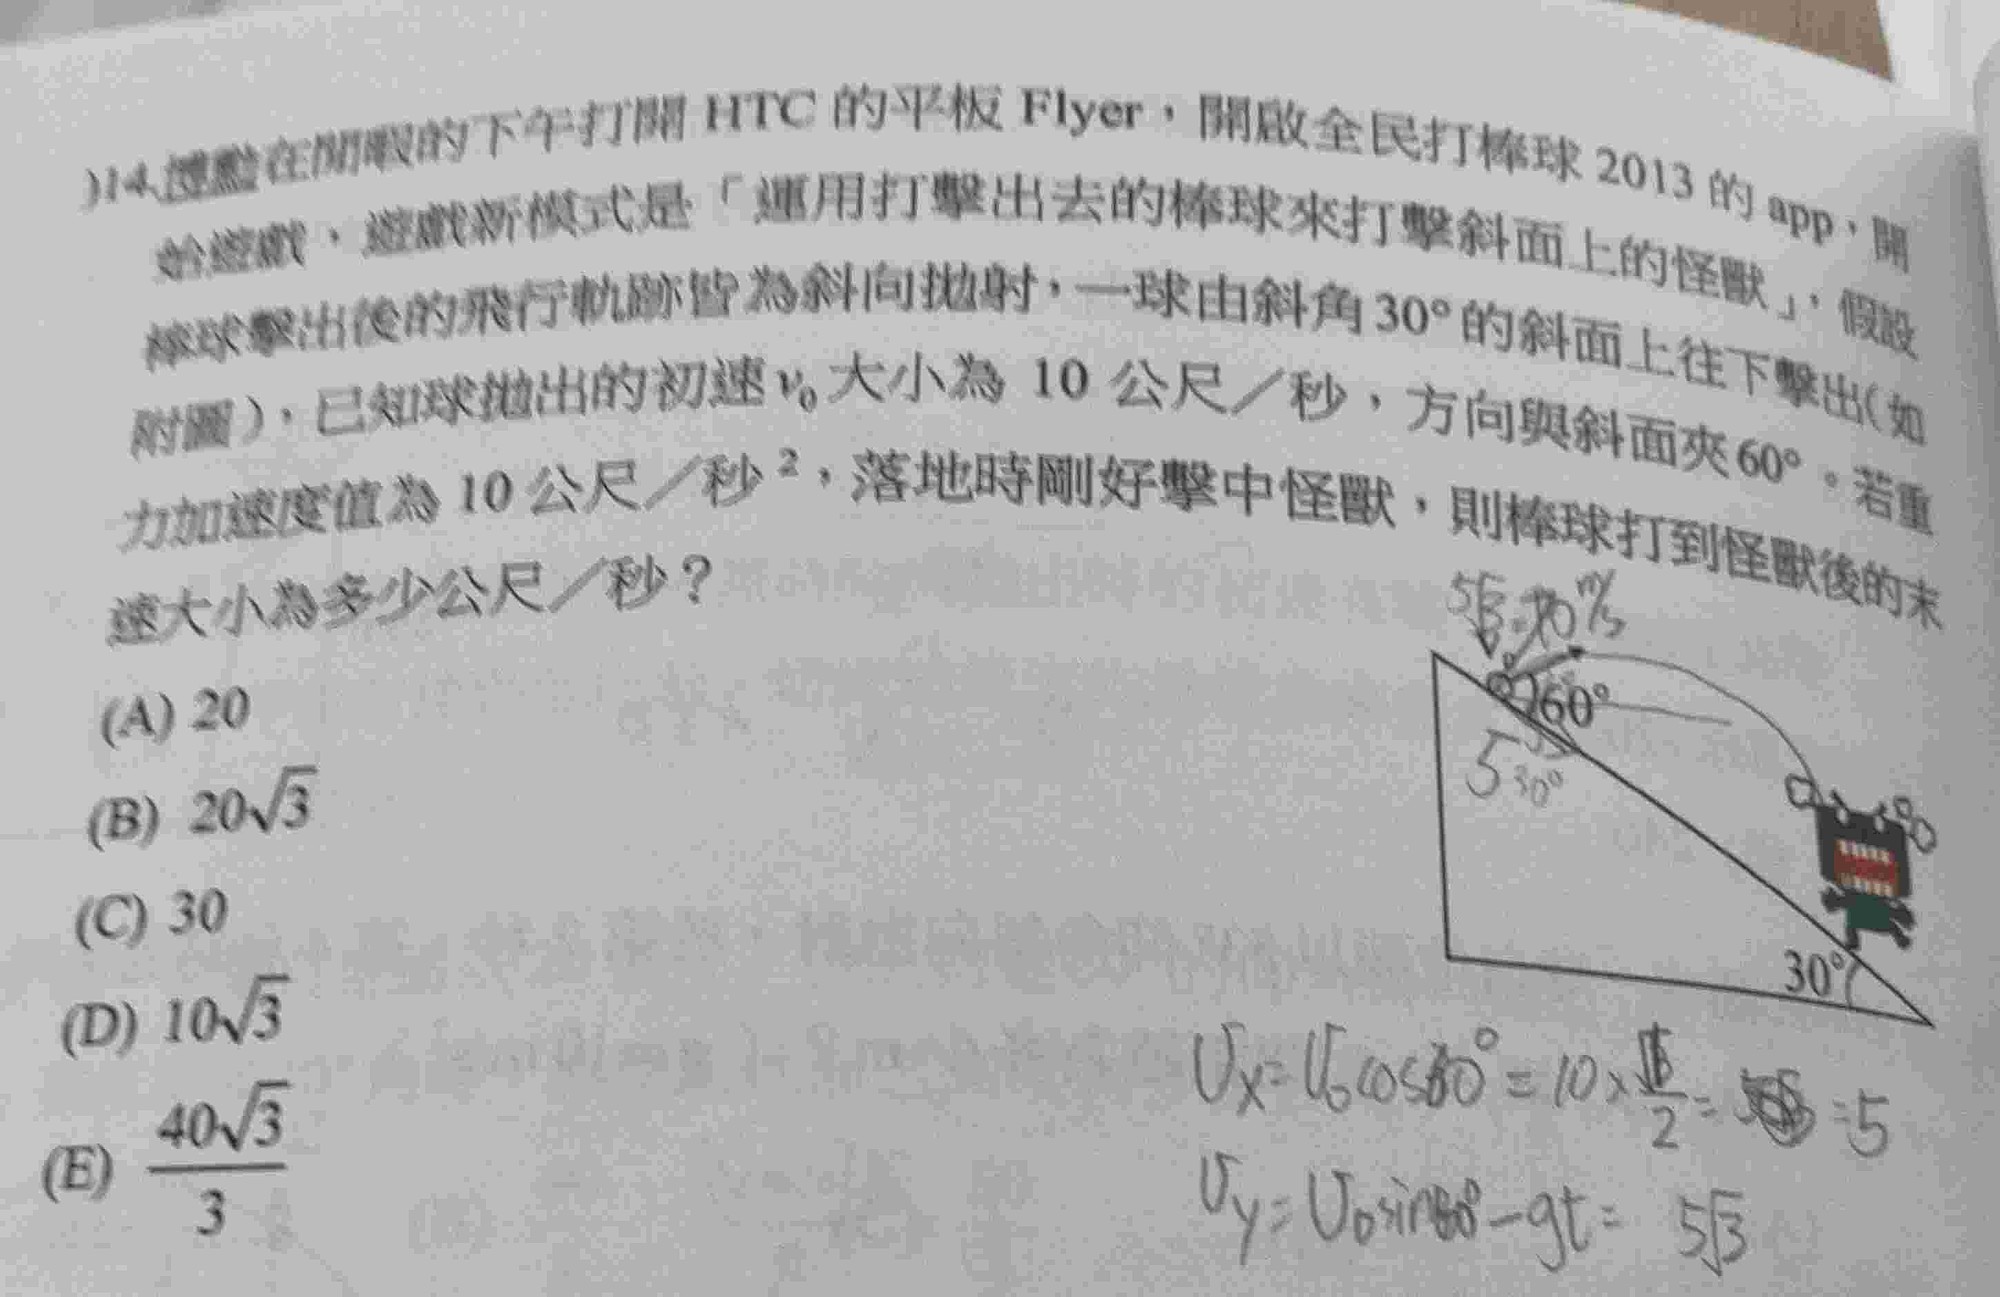 )14.
在閒暇的下午打開 HTC 的平板 Flyer，開啟全民打棒球 2013 的 app，開
始遊戲，遊戲新模式是「運用打擊出去的棒球來打擊斜面上的怪獸」，假設
棒球擊出後的飛行軌跡皆為斜向拋射，一球由斜角30°的斜面上往下擊出(如
附圖)，已知球拋出的初速v₀大小為 10 公尺／秒，方向與斜面夾60°。若重
力加速度值為 10 公尺／秒²，落地時剛好擊中怪獸，則棒球打到怪獸後的末
速大小為多少公尺／秒？
(A) 20
(B) 20√3
(C) 30
(D) 10√3
(E) 40√3/3
5√3
10 m/s
60°
5
30°
30°
Vx=V₀cos60°=10×1/2= =5
Vy=V₀sin60°-gt= 5√3